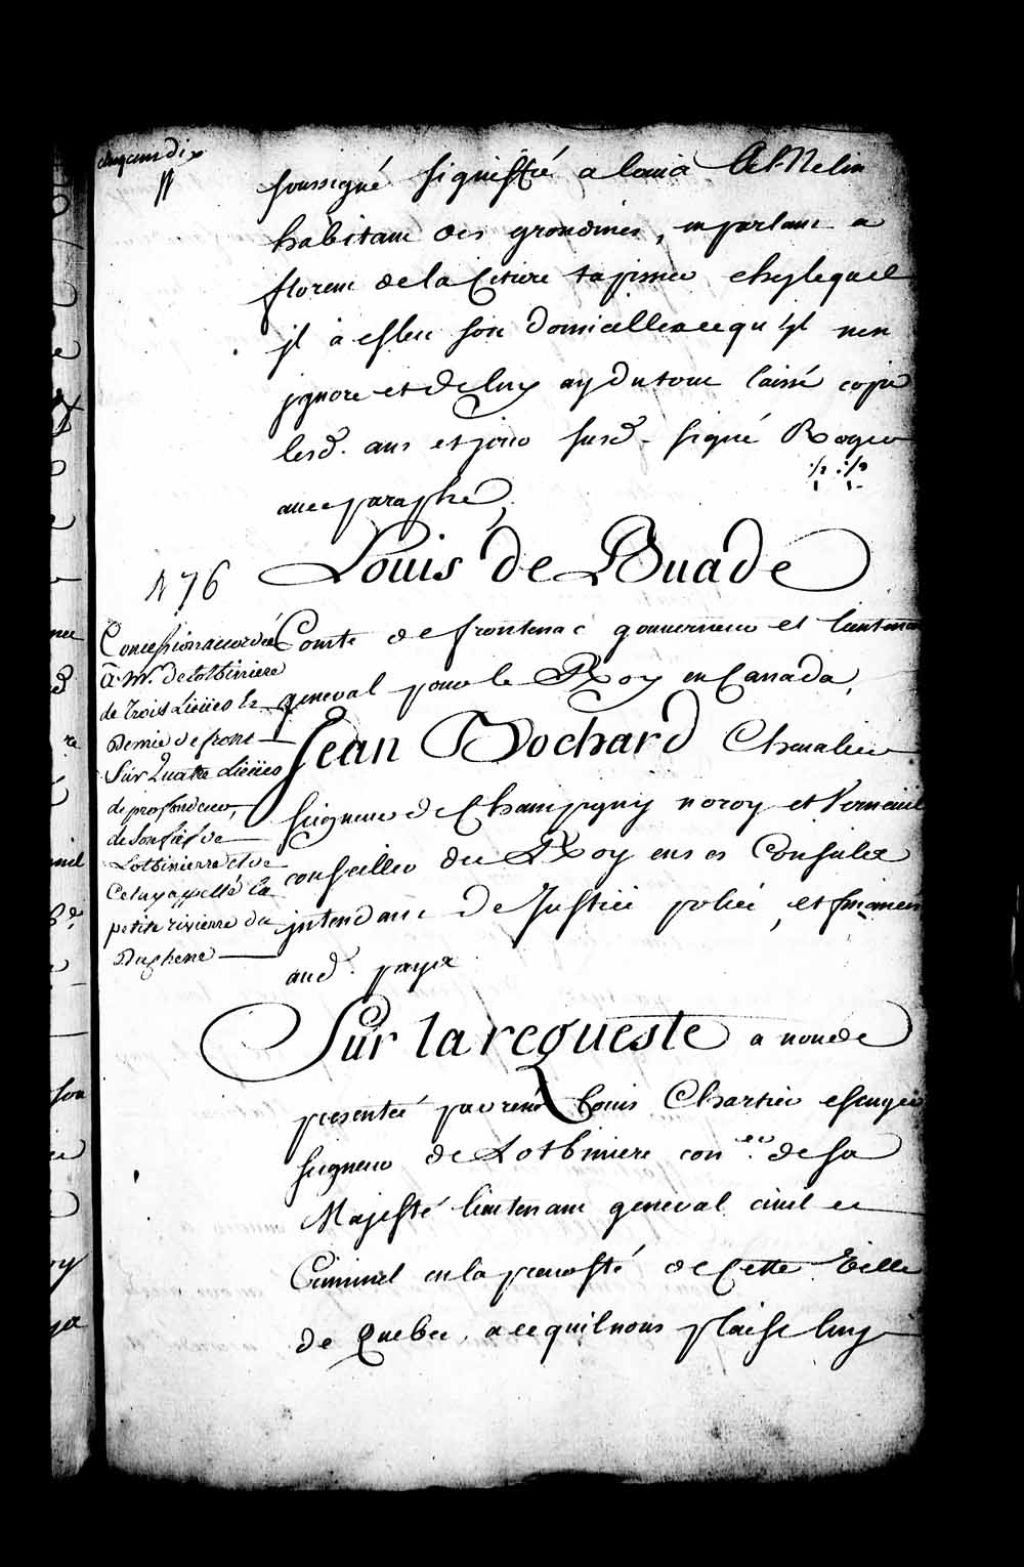 cinq cens dix
soussigné signiffié a Louis
habitant des grondines, en parlant a
florent de la Cetiere tapissier chez lequel
jl a esleu son domicille a ce qu'jl nen
jgnore et de luy ay du tout laissé copie
lesd. ans et jour susd. signé Roger
avec paraphe,
Louis de Buade
Comte de frontenac gouverneur et lieutenant
general pour le Roy en Canada,
Jean Bochard Chevalier
seigneur de Champigny noroy et Verneuil
conseiller du Roy en ses Conseils
jntendant de Justice police, et finances
aud. pays
Sur la requeste a nous
presentée par rené Louis Chartier escuyer
seigneur de Lotbiniere con.er de sa
Majesté lieutenant general civil et
Criminel en la prevosté de Cette Ville
de Quebec, a ce quil nous plaise luy
N 76
Concession accordée
à Mr. de Lotbiniere
de trois Lieües &
Demie de front
Sur Quatre Lieües
de profondeur,
de son fief de
Lotbinierre et de
Celuy appellé la
petite rivierre du
Duchene